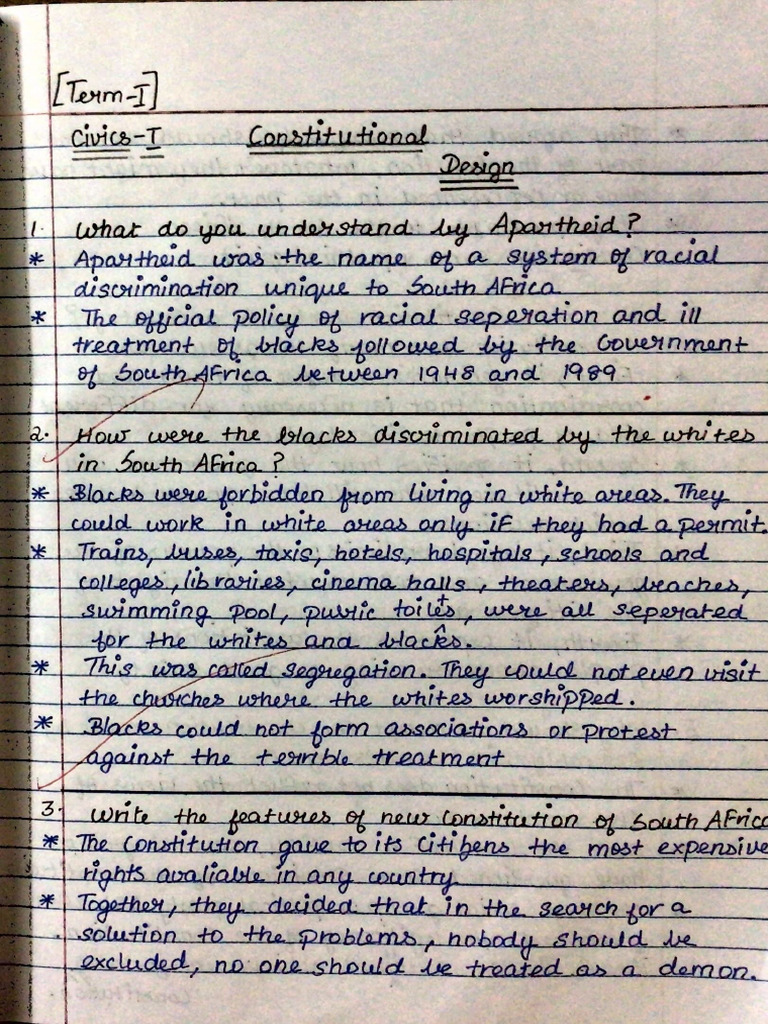 [Term-I]
Civics-I Constitutional
Design
1. What do you understand by Apartheid?
* Apartheid was the name of a system of racial
discrimination unique to South Africa
* The official policy of racial seperation and ill
treatment of blacks followed by the Government
of South Africa between 1948 and 1989
2. How were the blacks discriminated by the whites
in South Africa?
* Blacks were forbidden from living in white areas. They
could work in white areas only if they had a permit.
* Trains, buses, taxis, hotels, hospitals, schools and
colleges, libraries, cinema halls, theaters, beaches,
swimming pool, public toilets, were all seperated
for the whites and blacks.
* This was called segregation. They could not even visit
the churches where the whites worshipped.
* Blacks could not form associations or protest
against the terrible treatment
3. Write the features of new constitution of South Africa
* The constitution gave to its citizens the most expensive
rights avaliable in any country
* Together, they decided that in the search for a
solution to the problems, nobody should be
excluded, no one should be treated as a demon.